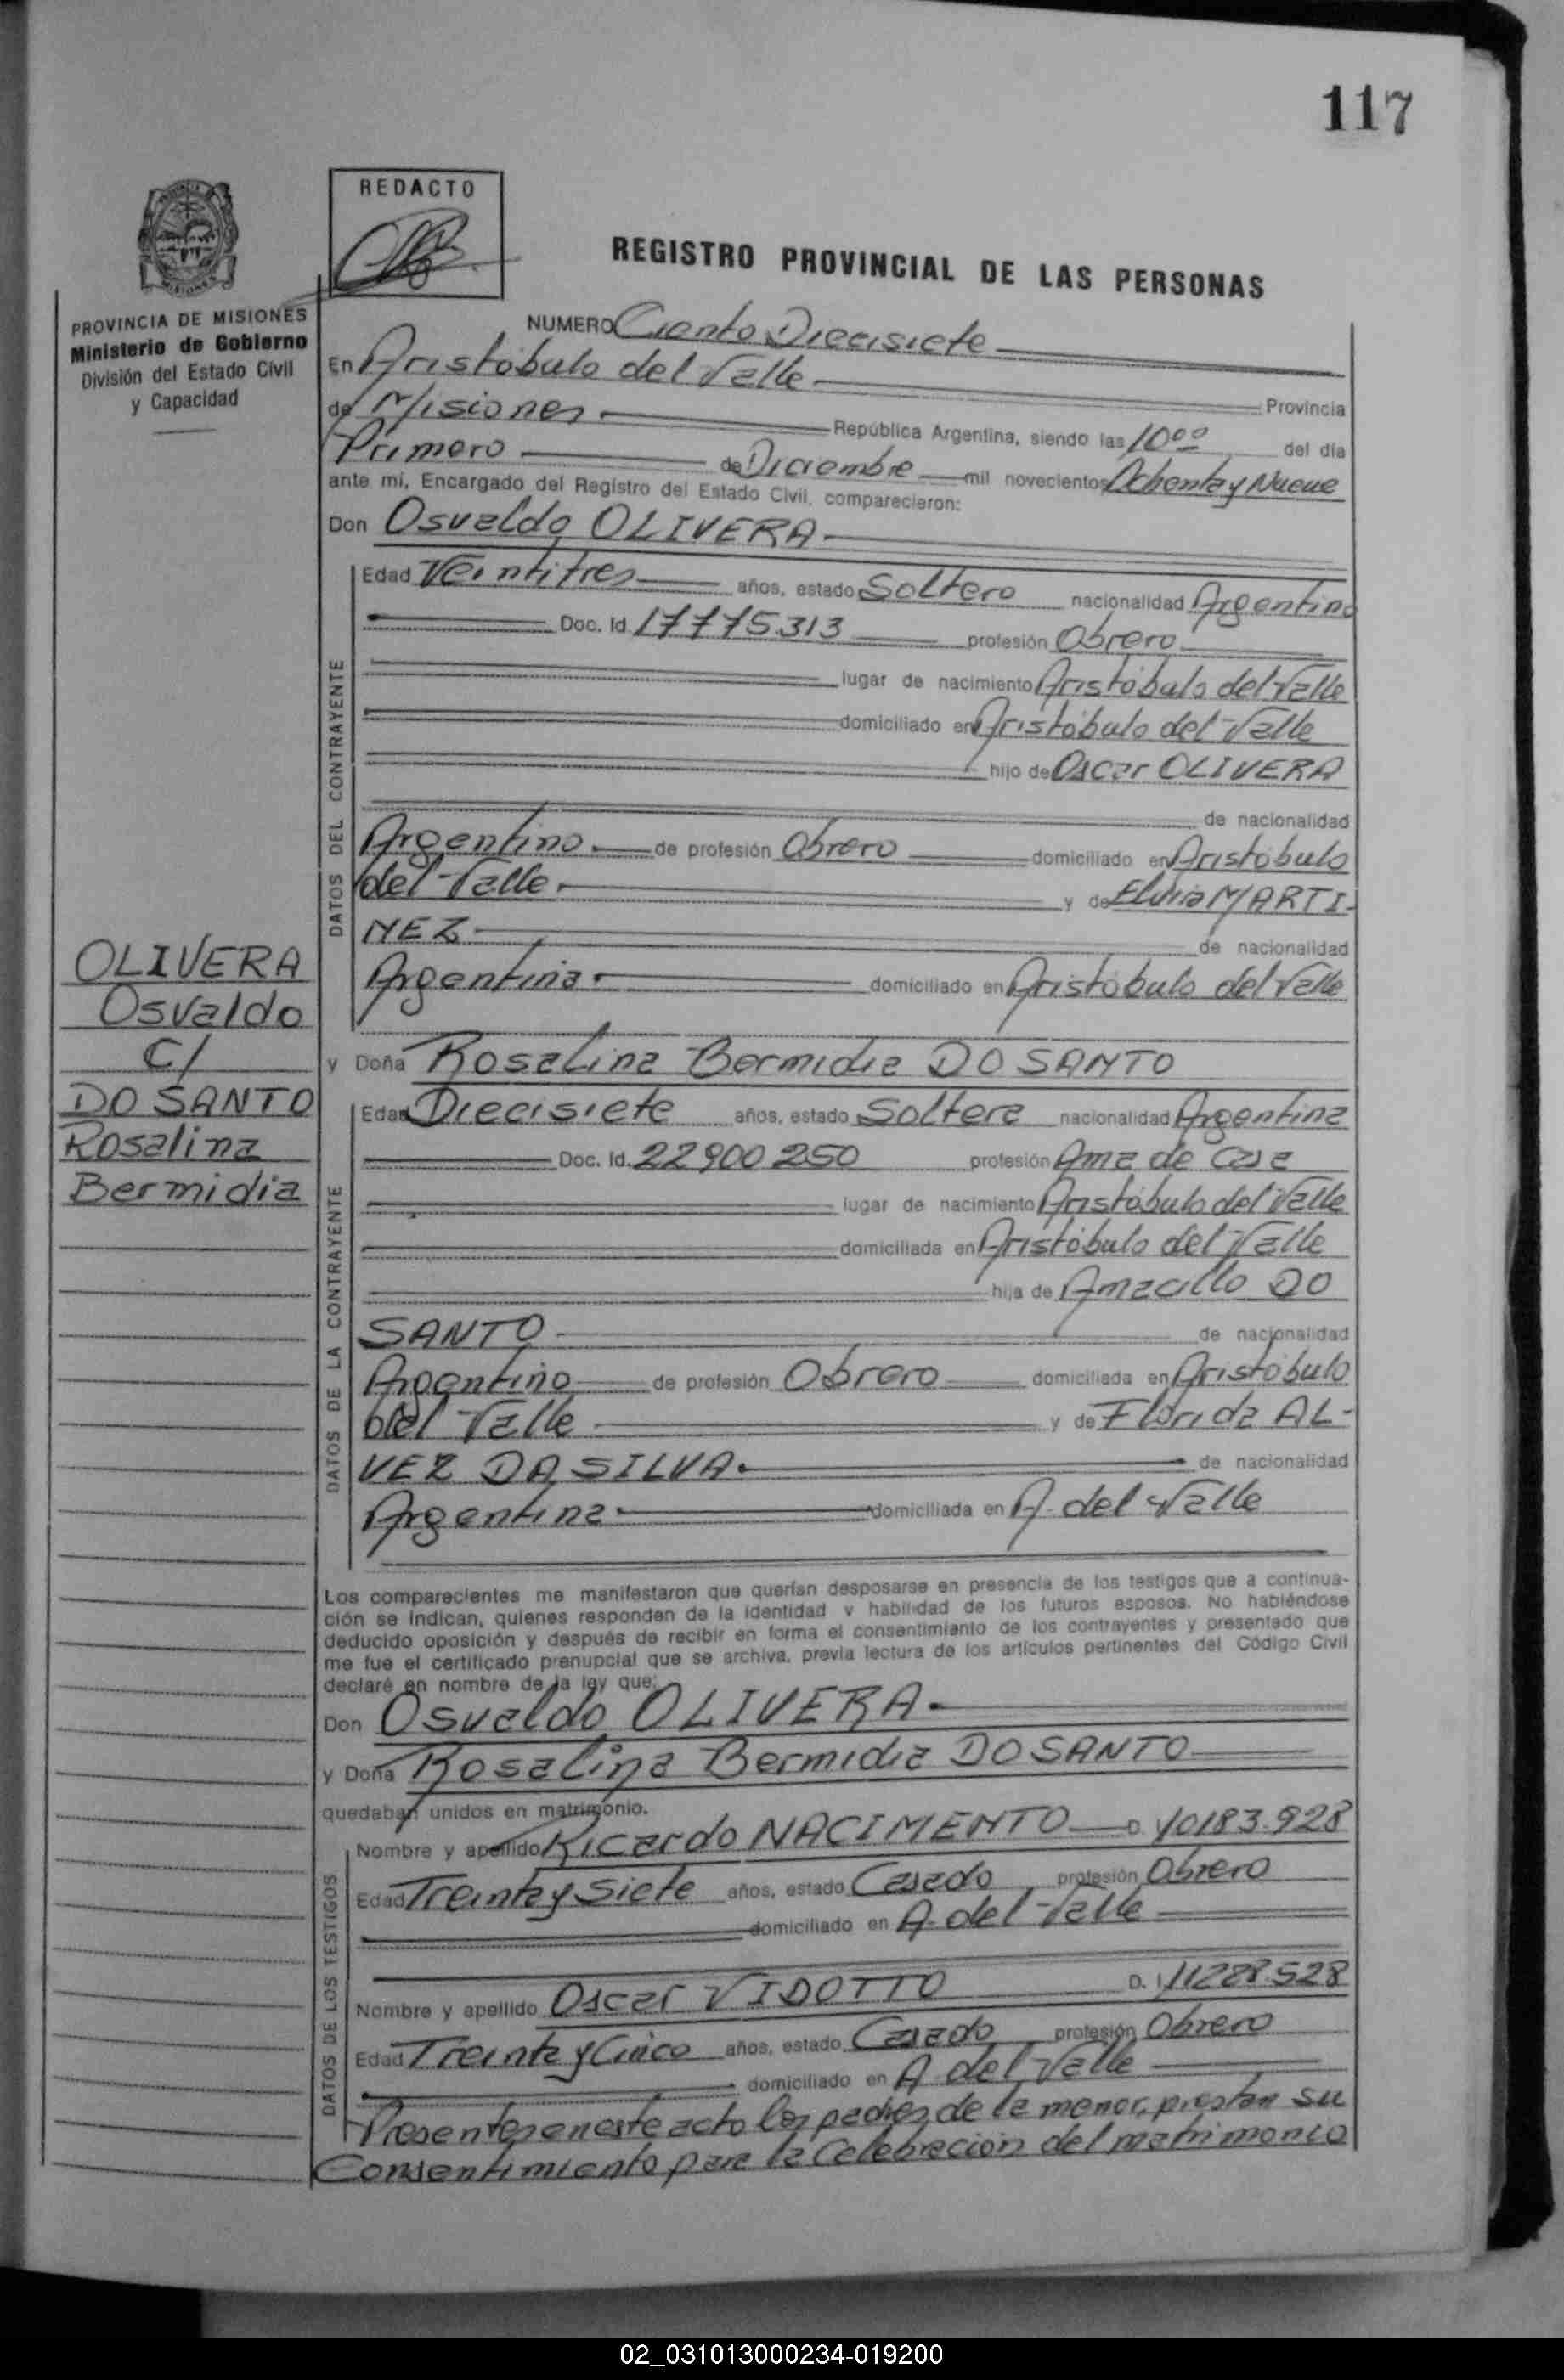 117
REDACTO
REGISTRO PROVINCIAL DE LAS PERSONAS
PROVINCIA DE MISIONES
Ministerio de Gobierno
División del Estado Civil
y Capacidad
NUMERO Ciento Diecisiete
En Aristóbulo del Valle Provincia
de Misiones República Argentina, siendo las 10°° del día
Primero de Diciembre mil novecientos Ochenta y Nueve
ante mí, Encargado del Registro del Estado Civil, comparecieron:
Don Osvaldo OLIVERA
DATOS DEL CONTRAYENTE
Edad Veintitres años, estado Soltero nacionalidad Argentino
Doc. Id. 17775313 profesión Obrero
lugar de nacimiento Aristóbulo del Valle
domiciliado en Aristóbulo del Valle
hijo de Oscar OLIVERA
de nacionalidad
Argentino de profesión Obrero domiciliado en Aristobulo
del Valle y de Elvira MARTI-
NEZ de nacionalidad
Argentina domiciliado en Aristóbulo del Valle
OLIVERA
Osvaldo
C/
DO SANTO
Rosalina
Bermidia
y Doña Rosalina Bermidia DO SANTO
DATOS DE LA CONTRAYENTE
Edad Diecisiete años, estado Soltera nacionalidad Argentina
Doc. Id. 22900250 profesión Ama de casa
lugar de nacimiento Aristóbulo del Valle
domiciliada en Aristóbulo del Valle
hija de DO
SANTO de nacionalidad
Argentino de profesión Obrero domiciliada en Aristóbulo
del Valle y de Florida AL-
VEZ DA SILVA. de nacionalidad
Argentina domiciliada en A. del Valle
Los comparecientes me manifestaron que querían desposarse en presencia de los testigos que a continua-
ción se indican, quienes responden de la identidad y habilidad de los futuros esposos. No habiéndose
deducido oposición y después de recibir en forma el consentimiento de los contrayentes y presentado que
me fue el certificado prenupcial que se archiva, previa lectura de los artículos pertinentes del Código Civil
declaré en nombre de la ley que:
Don Osvaldo OLIVERA
y Doña Rosalina Bermidia DO SANTO
quedaban unidos en matrimonio.
DATOS DE LOS TESTIGOS
Nombre y apellido Ricardo NACIMENTO D. 10183.928
Edad Treinta y Siete años, estado Casado profesión Obrero
domiciliado en A. del Valle
Nombre y apellido Oscar VIDOTTO D. I. 11228528
Edad Treinta y Cinco años, estado Casado profesión Obrero
domiciliado en A. del Valle
Presentes en este acto los padres de la menor, prestan su
Consentimiento para la Celebración del matrimonio
02_031013000234-019200